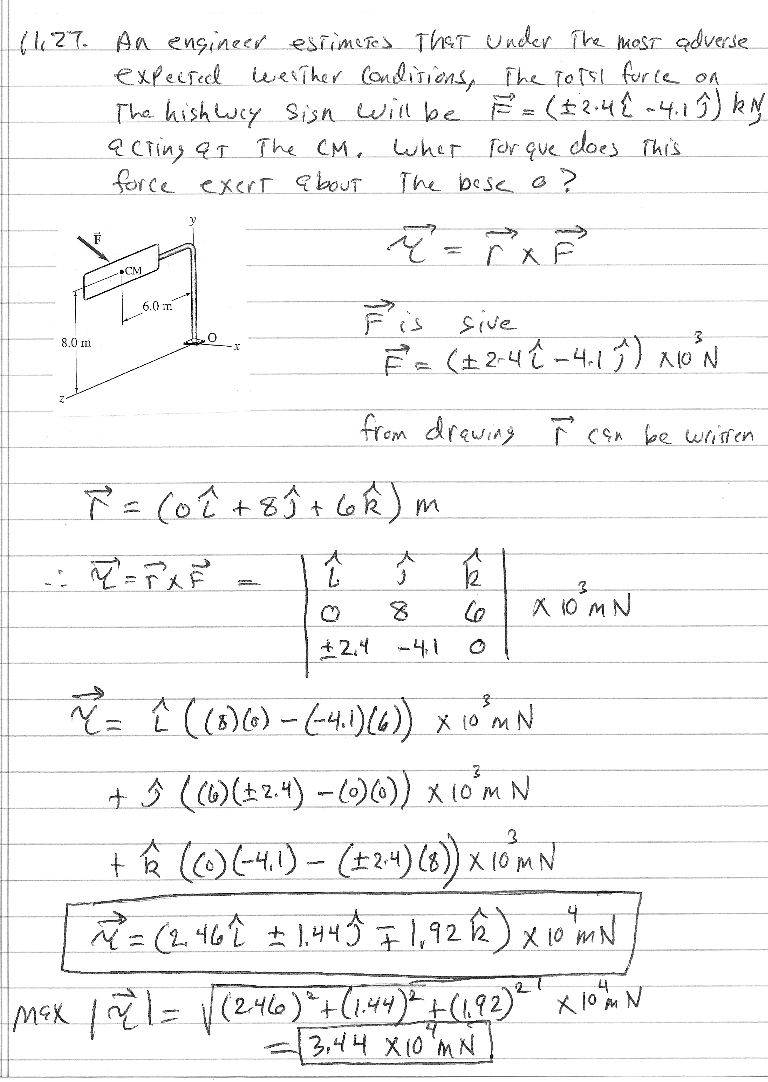 11.27. An engineer estimates That under The most adverse
expected weather Conditions, The Total force on
The highway Sign will be F⃗ = (±2.4î -4.1ĵ) kN,
acting at The CM. What Torque does This
force exert about The base o?
y
F⃗
CM
6.0 m
8.0 m
O
x
z
τ⃗ = r⃗ x F⃗
F⃗ is give
F⃗ = (±2.4î -4.1ĵ) x10³N
from drawing r⃗ can be written
r⃗ = (0î +8ĵ+6k̂) m
∴ τ⃗=r⃗xF⃗ = | î ĵ k̂ |
| 0 8 6 | x 10³mN
| ±2.4 -4.1 0 |
τ⃗ = î ((8)(0) -(-4.1)(6)) x 10³mN
+ ĵ ((6)(±2.4) -(0)(0)) x 10³mN
+ k̂ ((0)(-4.1) - (±2.4)(8)) x 10³mN
τ⃗ = (2.46î ± 1.44ĵ ∓ 1.92k̂) x 10⁴mN
max |τ⃗| = √(2.46)²+(1.44)²+(1.92)² x10⁴mN
= 3.44 x10⁴mN